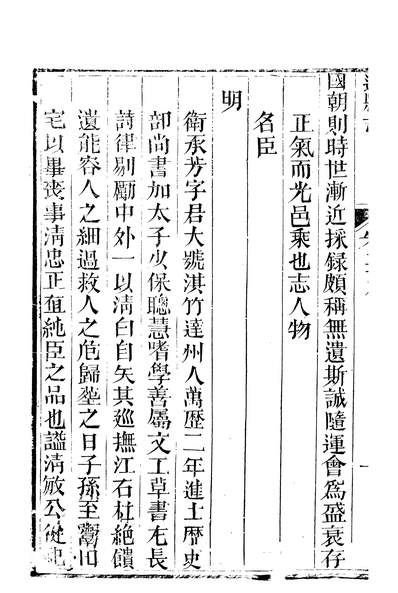 國朝則時世漸近採録頗稱無遺斯誠隨運會爲盛衰存
正氣而光邑乘也志人物
名臣
明
衛承芳字君大號淇竹達州人萬歷二年進士歷史
部尚書加太子少保聰慧嗜學善屬文工草書尤長
詩律剔勵中外一以淸白自矢其巡撫江右杜絶饋
遺能容人之細過救人之危歸塟之日子孫至鬻旧
宅以畢喪事淸忠正直純臣之品也謚淸敏公從祀